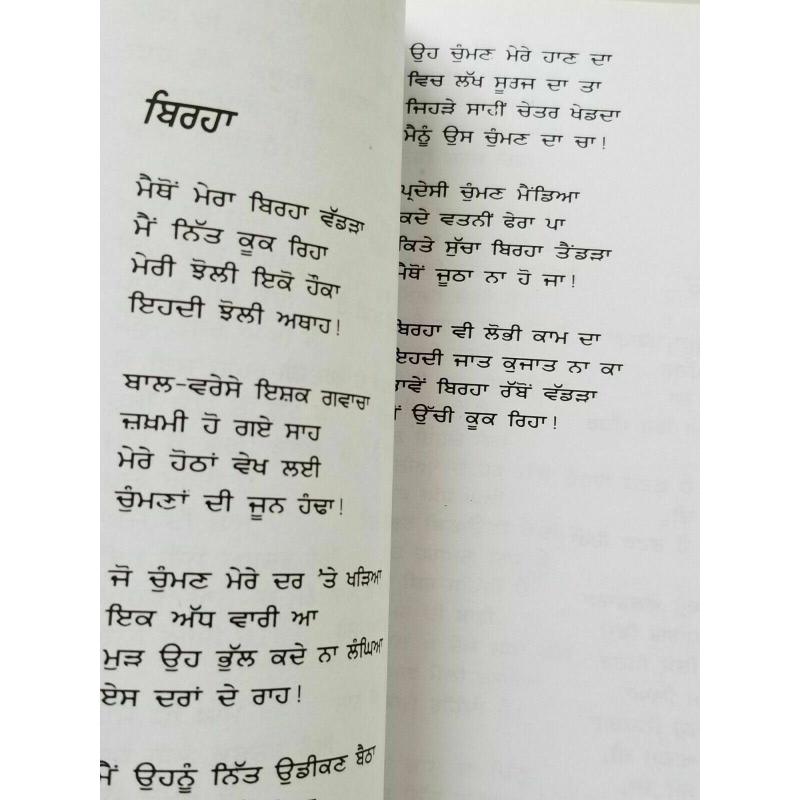 ਬਿਰਹਾ
ਮੈਥੋਂ ਮੇਰਾ ਬਿਰਹਾ ਵੱਡੜਾ
ਮੈਂ ਨਿੱਤ ਕੂਕ ਰਿਹਾ
ਮੇਰੀ ਝੋਲੀ ਇਕੋ ਹੌਕਾ
ਇਹਦੀ ਝੋਲੀ ਅਥਾਹ!
ਬਾਲ-ਵਰੇਸੇ ਇਸ਼ਕ ਗਵਾਚਾ
ਜ਼ਖ਼ਮੀ ਹੋ ਗਏ ਸਾਹ
ਮੇਰੇ ਹੋਠਾਂ ਵੇਖ ਲਈ
ਚੁੰਮਣਾਂ ਦੀ ਜੂਨ ਹੰਢਾ!
ਜੋ ਚੁੰਮਣ ਮੇਰੇ ਦਰ 'ਤੇ ਖੜਿਆ
ਇਕ ਅੱਧ ਵਾਰੀ ਆ
ਮੁੜ ਉਹ ਭੁੱਲ ਕਦੇ ਨਾ ਲੰਘਿਆ
ਏਸ ਦਰਾਂ ਦੇ ਰਾਹ!
ਮੈਂ ਉਹਨੂੰ ਨਿੱਤ ਉਡੀਕਣ ਬੈਠਾ
ਉਹ ਚੁੰਮਣ ਮੇਰੇ ਹਾਣ ਦਾ
ਵਿਚ ਲੱਖ ਸੂਰਜ ਦਾ ਤਾ
ਜਿਹੜੇ ਸਾਹੀਂ ਚੇਤਰ ਖੇਡਦਾ
ਮੈਨੂੰ ਉਸ ਚੁੰਮਣ ਦਾ ਚਾ!
ਪ੍ਰਦੇਸੀ ਚੁੰਮਣ ਮੈਂਡਿਆ
ਕਦੇ ਵਤਨੀਂ ਫੇਰਾ ਪਾ
ਕਿਤੇ ਸੁੱਚਾ ਬਿਰਹਾ ਤੈਂਡੜਾ
ਮੈਥੋਂ ਜੂਠਾ ਨਾ ਹੋ ਜਾ!
ਬਿਰਹਾ ਵੀ ਲੋਭੀ ਕਾਮ ਦਾ
ਇਹਦੀ ਜਾਤ ਕੁਜਾਤ ਨਾ ਕਾ
ਬਿਰਹਾ ਰੱਬੋਂ ਵੱਡੜਾ
ਉੱਚੀ ਕੂਕ ਰਿਹਾ!